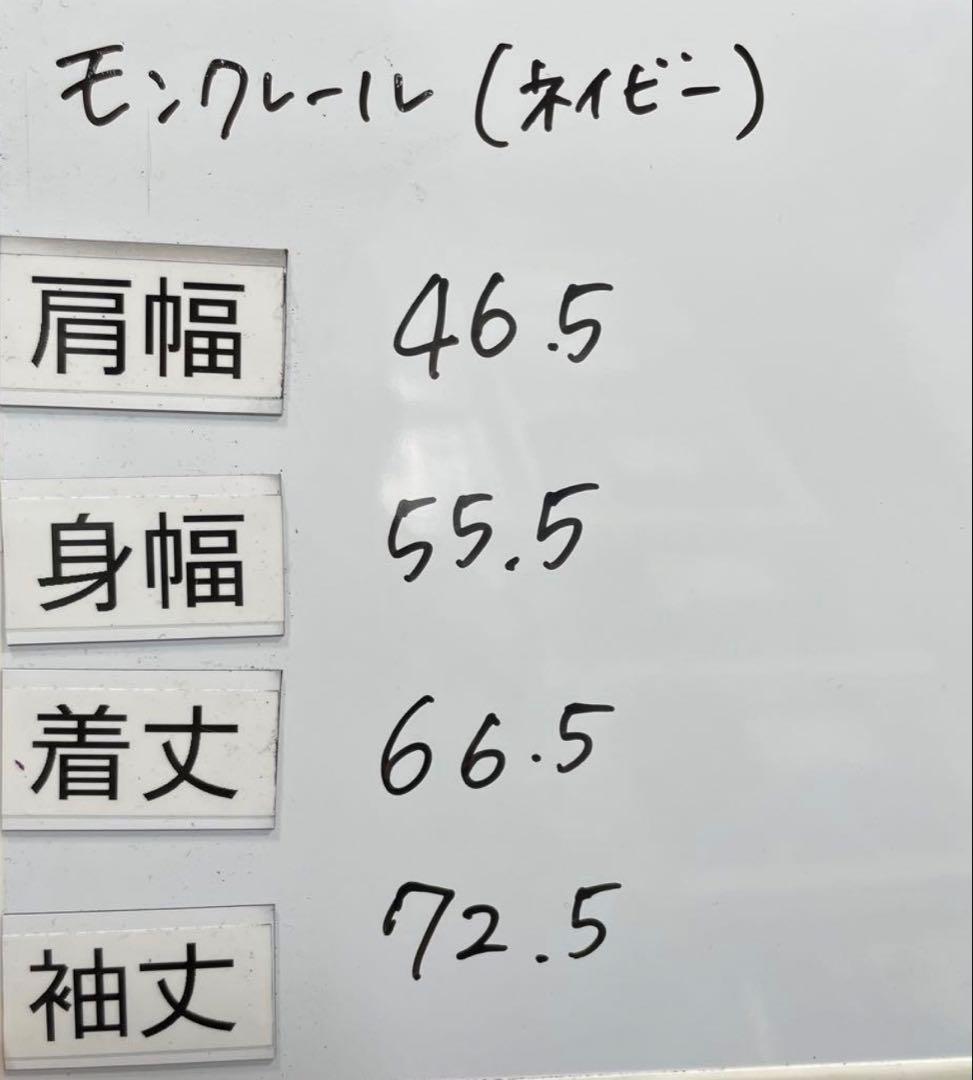 モンクレール(ネイビー)
肩幅 46.5
身幅 55.5
着丈 66.5
袖丈 72.5